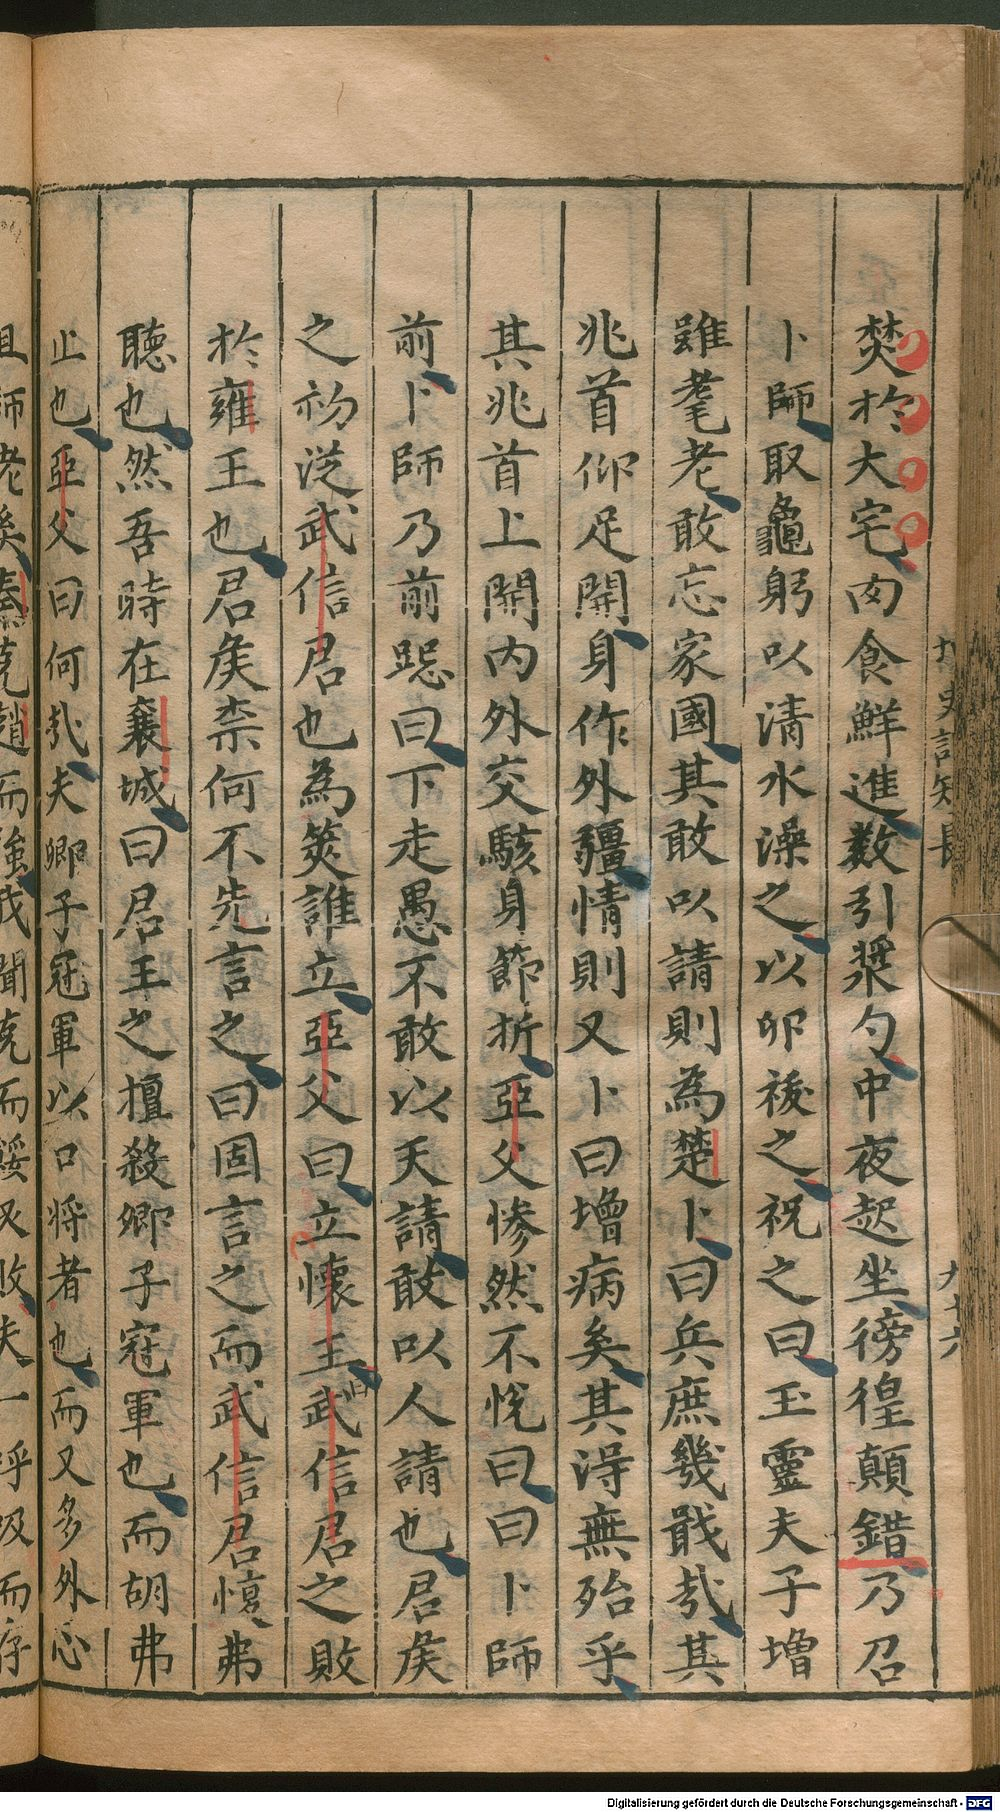 焚於大宅肉食鮮進數引漿勺中夜起坐徬徨顛錯乃召
卜師取龜躬以清水澡之以卵祓之祝之曰玉靈夫子增
雖耄老敢忘家國其敢以請則為楚卜曰兵庶幾戢㢤其
兆首仰足開身作外彊情則又卜曰增病矣其得無殆乎
其兆首上開內外交駭身節折亞父慘然不悅曰曰卜師
前卜師乃前跽曰下走愚不敢以天請敢以人請也君矦
之初從武信君也為筴誰立亞父曰立懷王曰武信君之敗
於雍王也君矦柰何不先言之曰固言之而武信君愎弗
聽也然吾時在襄城曰君王之擅殺卿子冠軍也而胡弗
止也亞父曰何㢤夫卿子冠軍以口將者也而又多外心
且師老矣秦克趙而強我聞克而綏又敗夫一呼吸而存
九十六
Digitalisierung gefördert durch die Deutsche Forschungsgemeinschaft - DFG